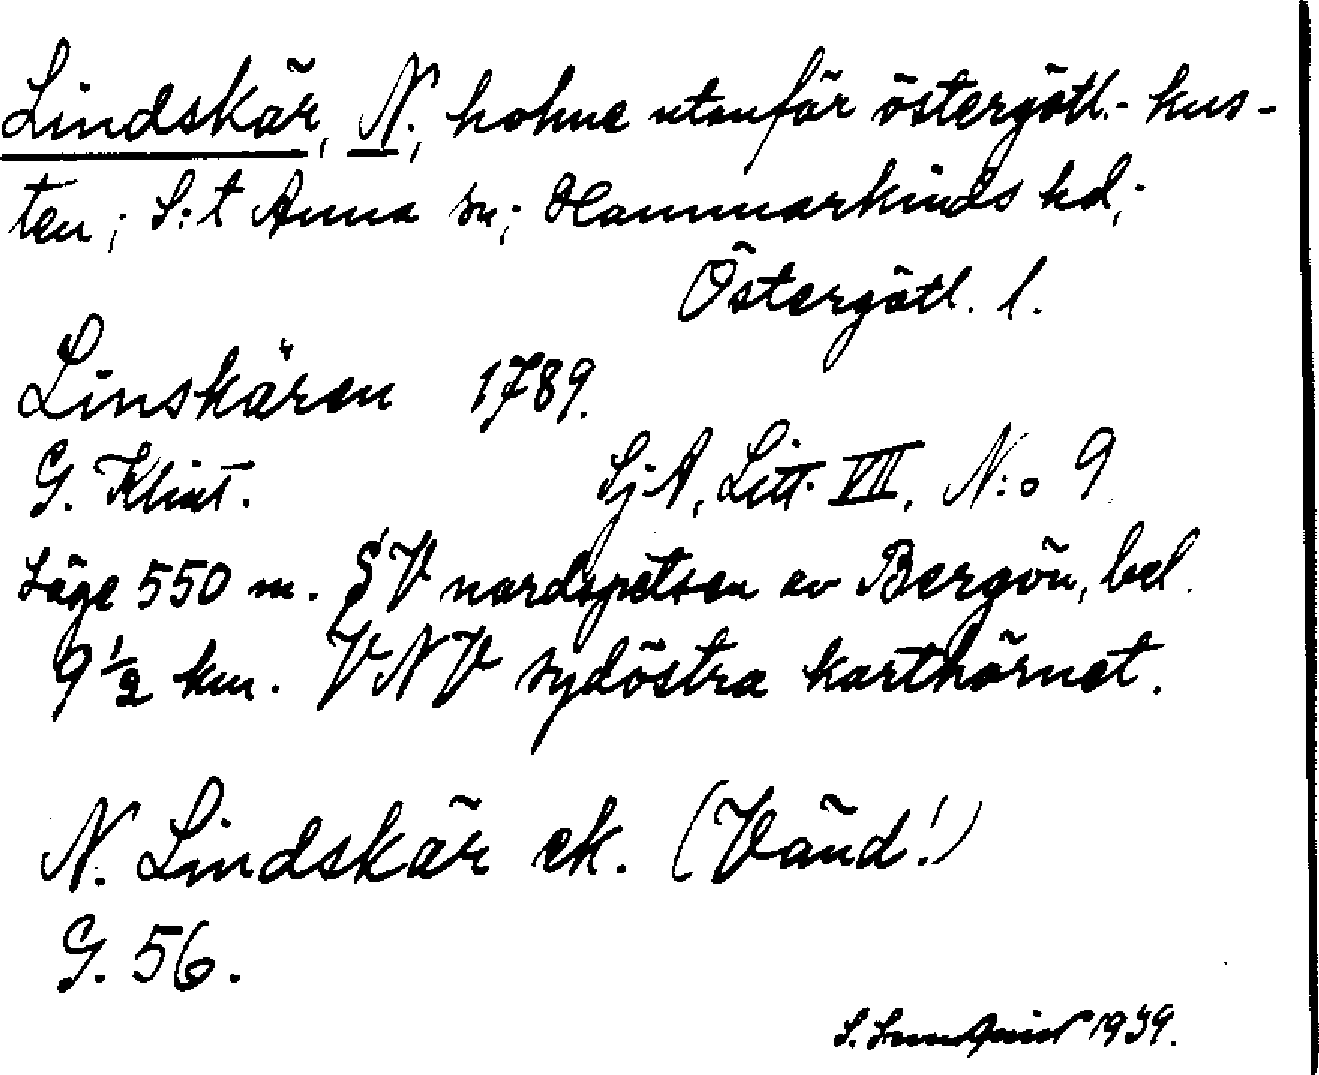 Lindskär, N., holme utanför östergötl.-kus-
ten; S:t Anna sn; Hammarkinds hd;
Östergötl. l.
Linskären 1789.
G. Klint. SjA, Litt. VII, N:o 9
Läge 550 m. SV nordspetsen av Bergön, bel.
9 1/2 km. VNV sydöstra karthörnet.
N. Lindskär ek. (Vänd!)
G. 56.
S. 1939.